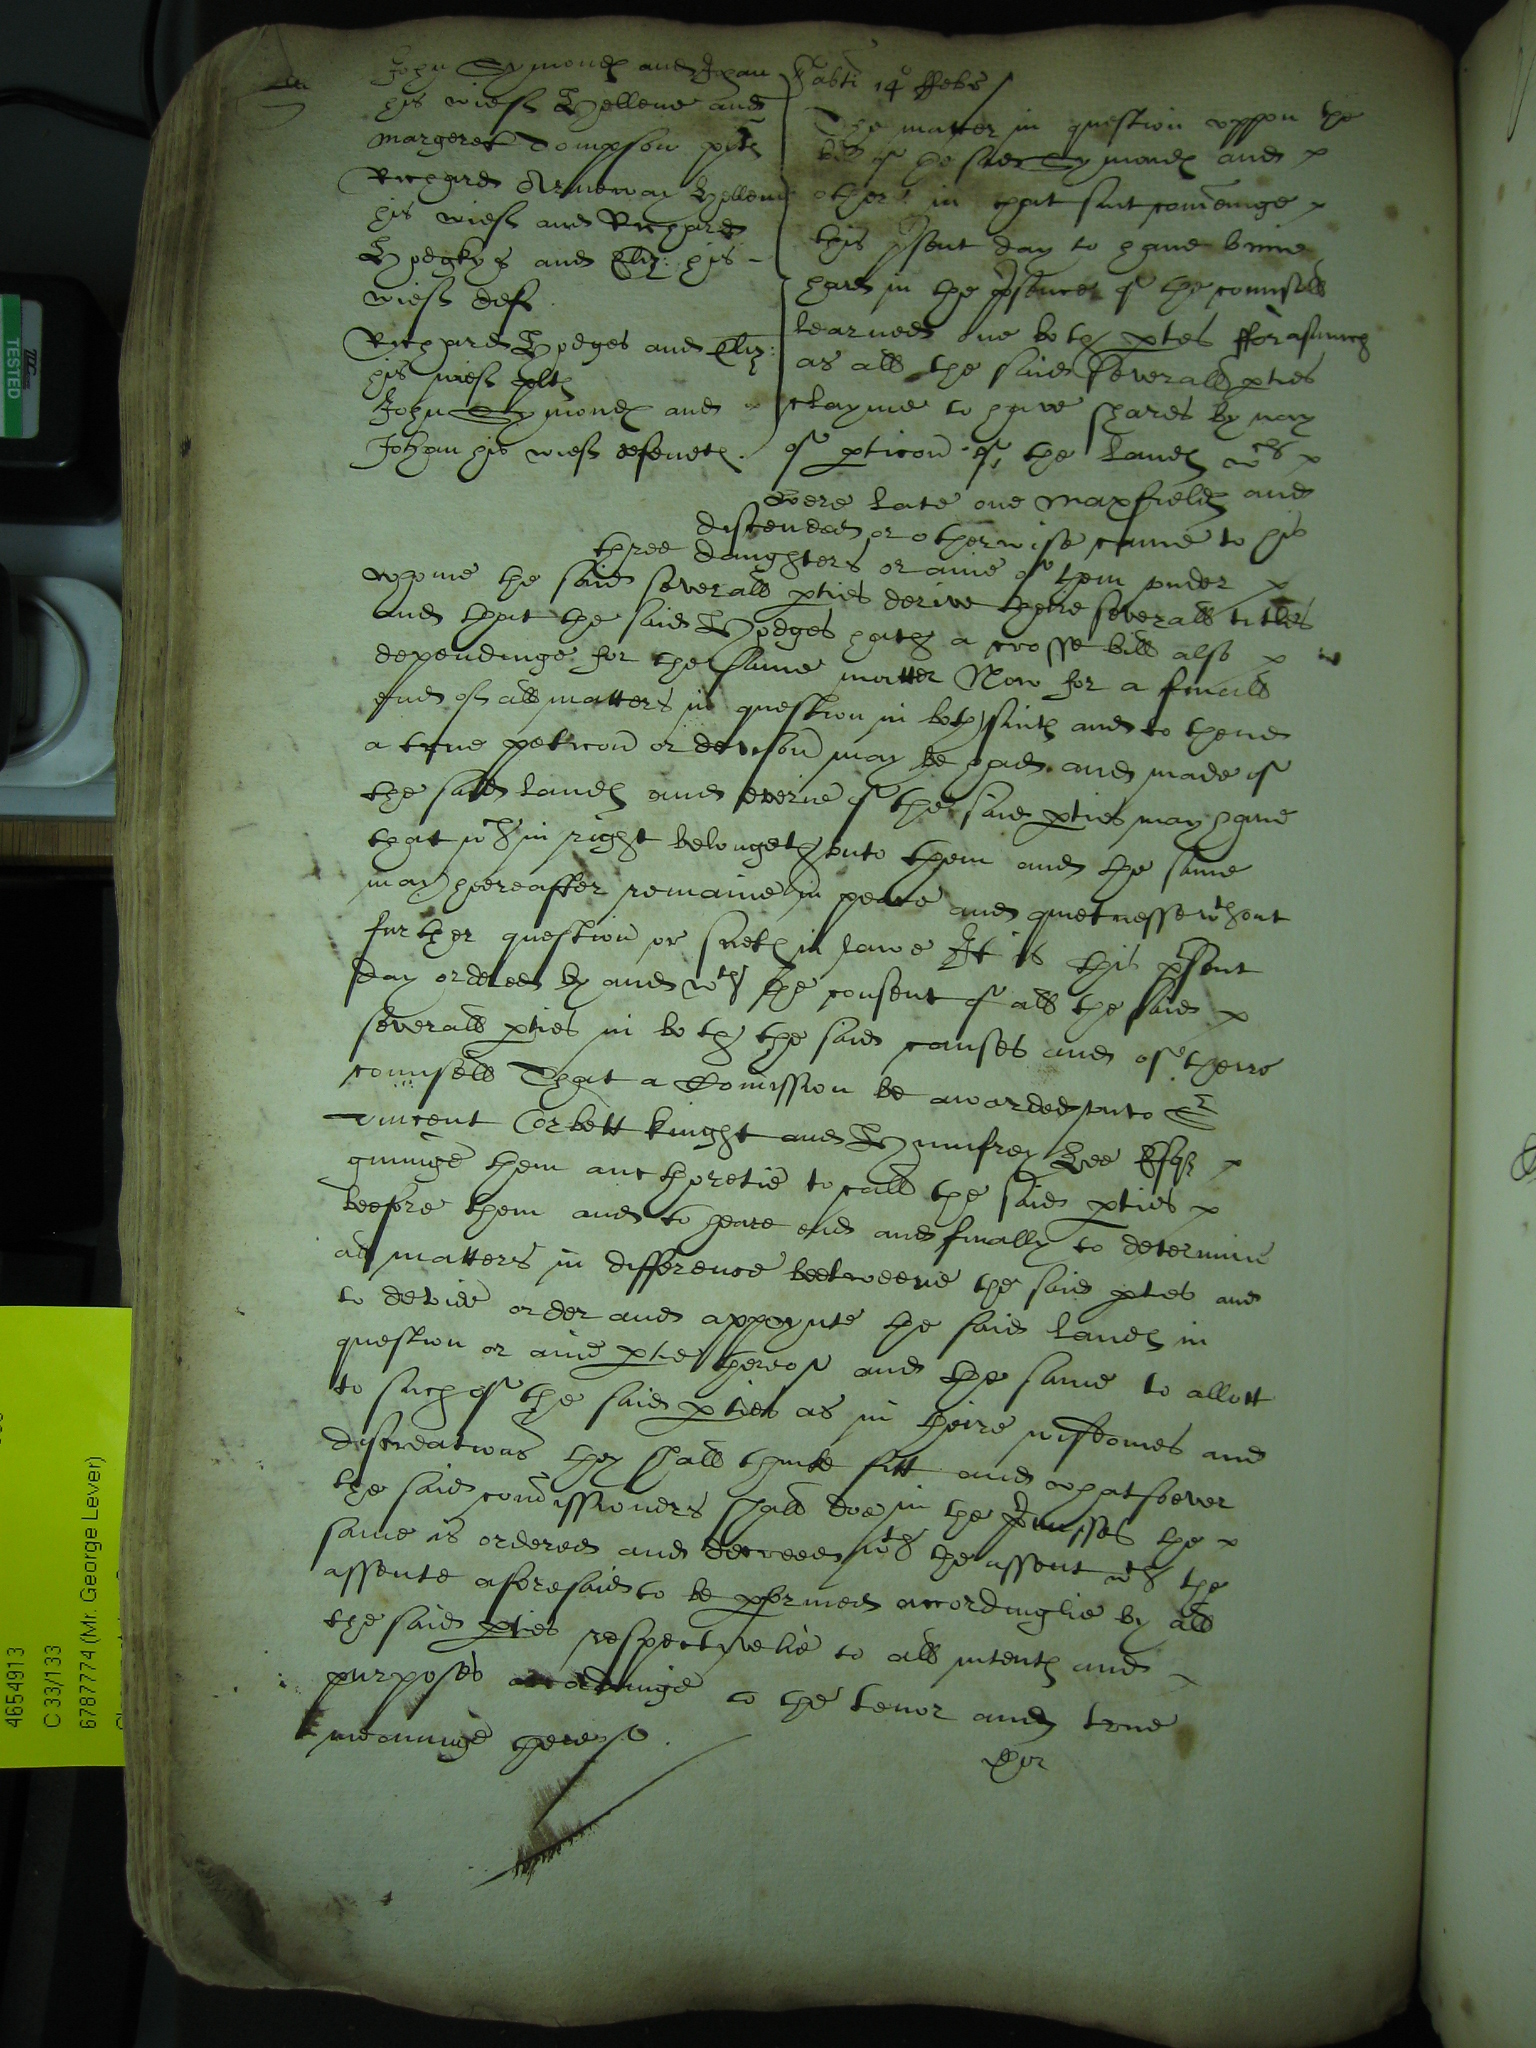 John Symond and Johan
his wief Hellene and
Margeret Tompson plts
Richard Arneway Hellene
his wief and Richard
Hodgkys and Eliz: his -
wief def
Richard Hodges and Eliz:
his wief plts
John Symond and
Johan his wief defendts.
Sabti 14° ffebr
The matter in question uppon the
bill of the said Symond and
others in that suit comeinge
this psent day to have binne
hard in the psence of the counsell
learned one both pties fforasmuch
as all the said severall pties
clayme to have shares by way
of pticon of the lands wch
were late one Maxfields and
discended or otherwise came to his
three daughters or anie of them under
whome the said severall pties derive theire severall titles
and that the said Hodges hath a crosse bill also
dependinge for the same matter Now for a finall
end of all matters in question in both suits and to thend
a true peticon or devison may be had and made of
the said lands and everie of the said pties may have
that wch in right belongeth unto them and the same
may hereafter remaine in peace and quietnesse wthout
further question or suets in lawe It is this psent
day ordered by and wth the consent of all the said
severall pties in both the said causes and of theire
counsell That a Comission be awarded unto Sr
Vincent Corbett knight and Humfrey Lee Esqr
givinge them authoretie to call the said pties
beefore them and to heare end and finally to determine
all matters in difference beetweene the said pties and
to devide order and appoynte the said lands in
question or anie ptie thereof and the same to allott
to such of the said pties as in theire wisdomes and
discreations they shall thinke fitt and whatsoever
the said comissioners shall doe in the pmisses the
same is ordered and decreed wth the assent wth the
assente aforesaid to be pformed accordinglie by all
the said pties respectyvelie to all intents and
purposes accordinge to the tenor and true
meaninge hereof.
TESTED
4654913
C 33/133
6787774 (Mr. George Lever)